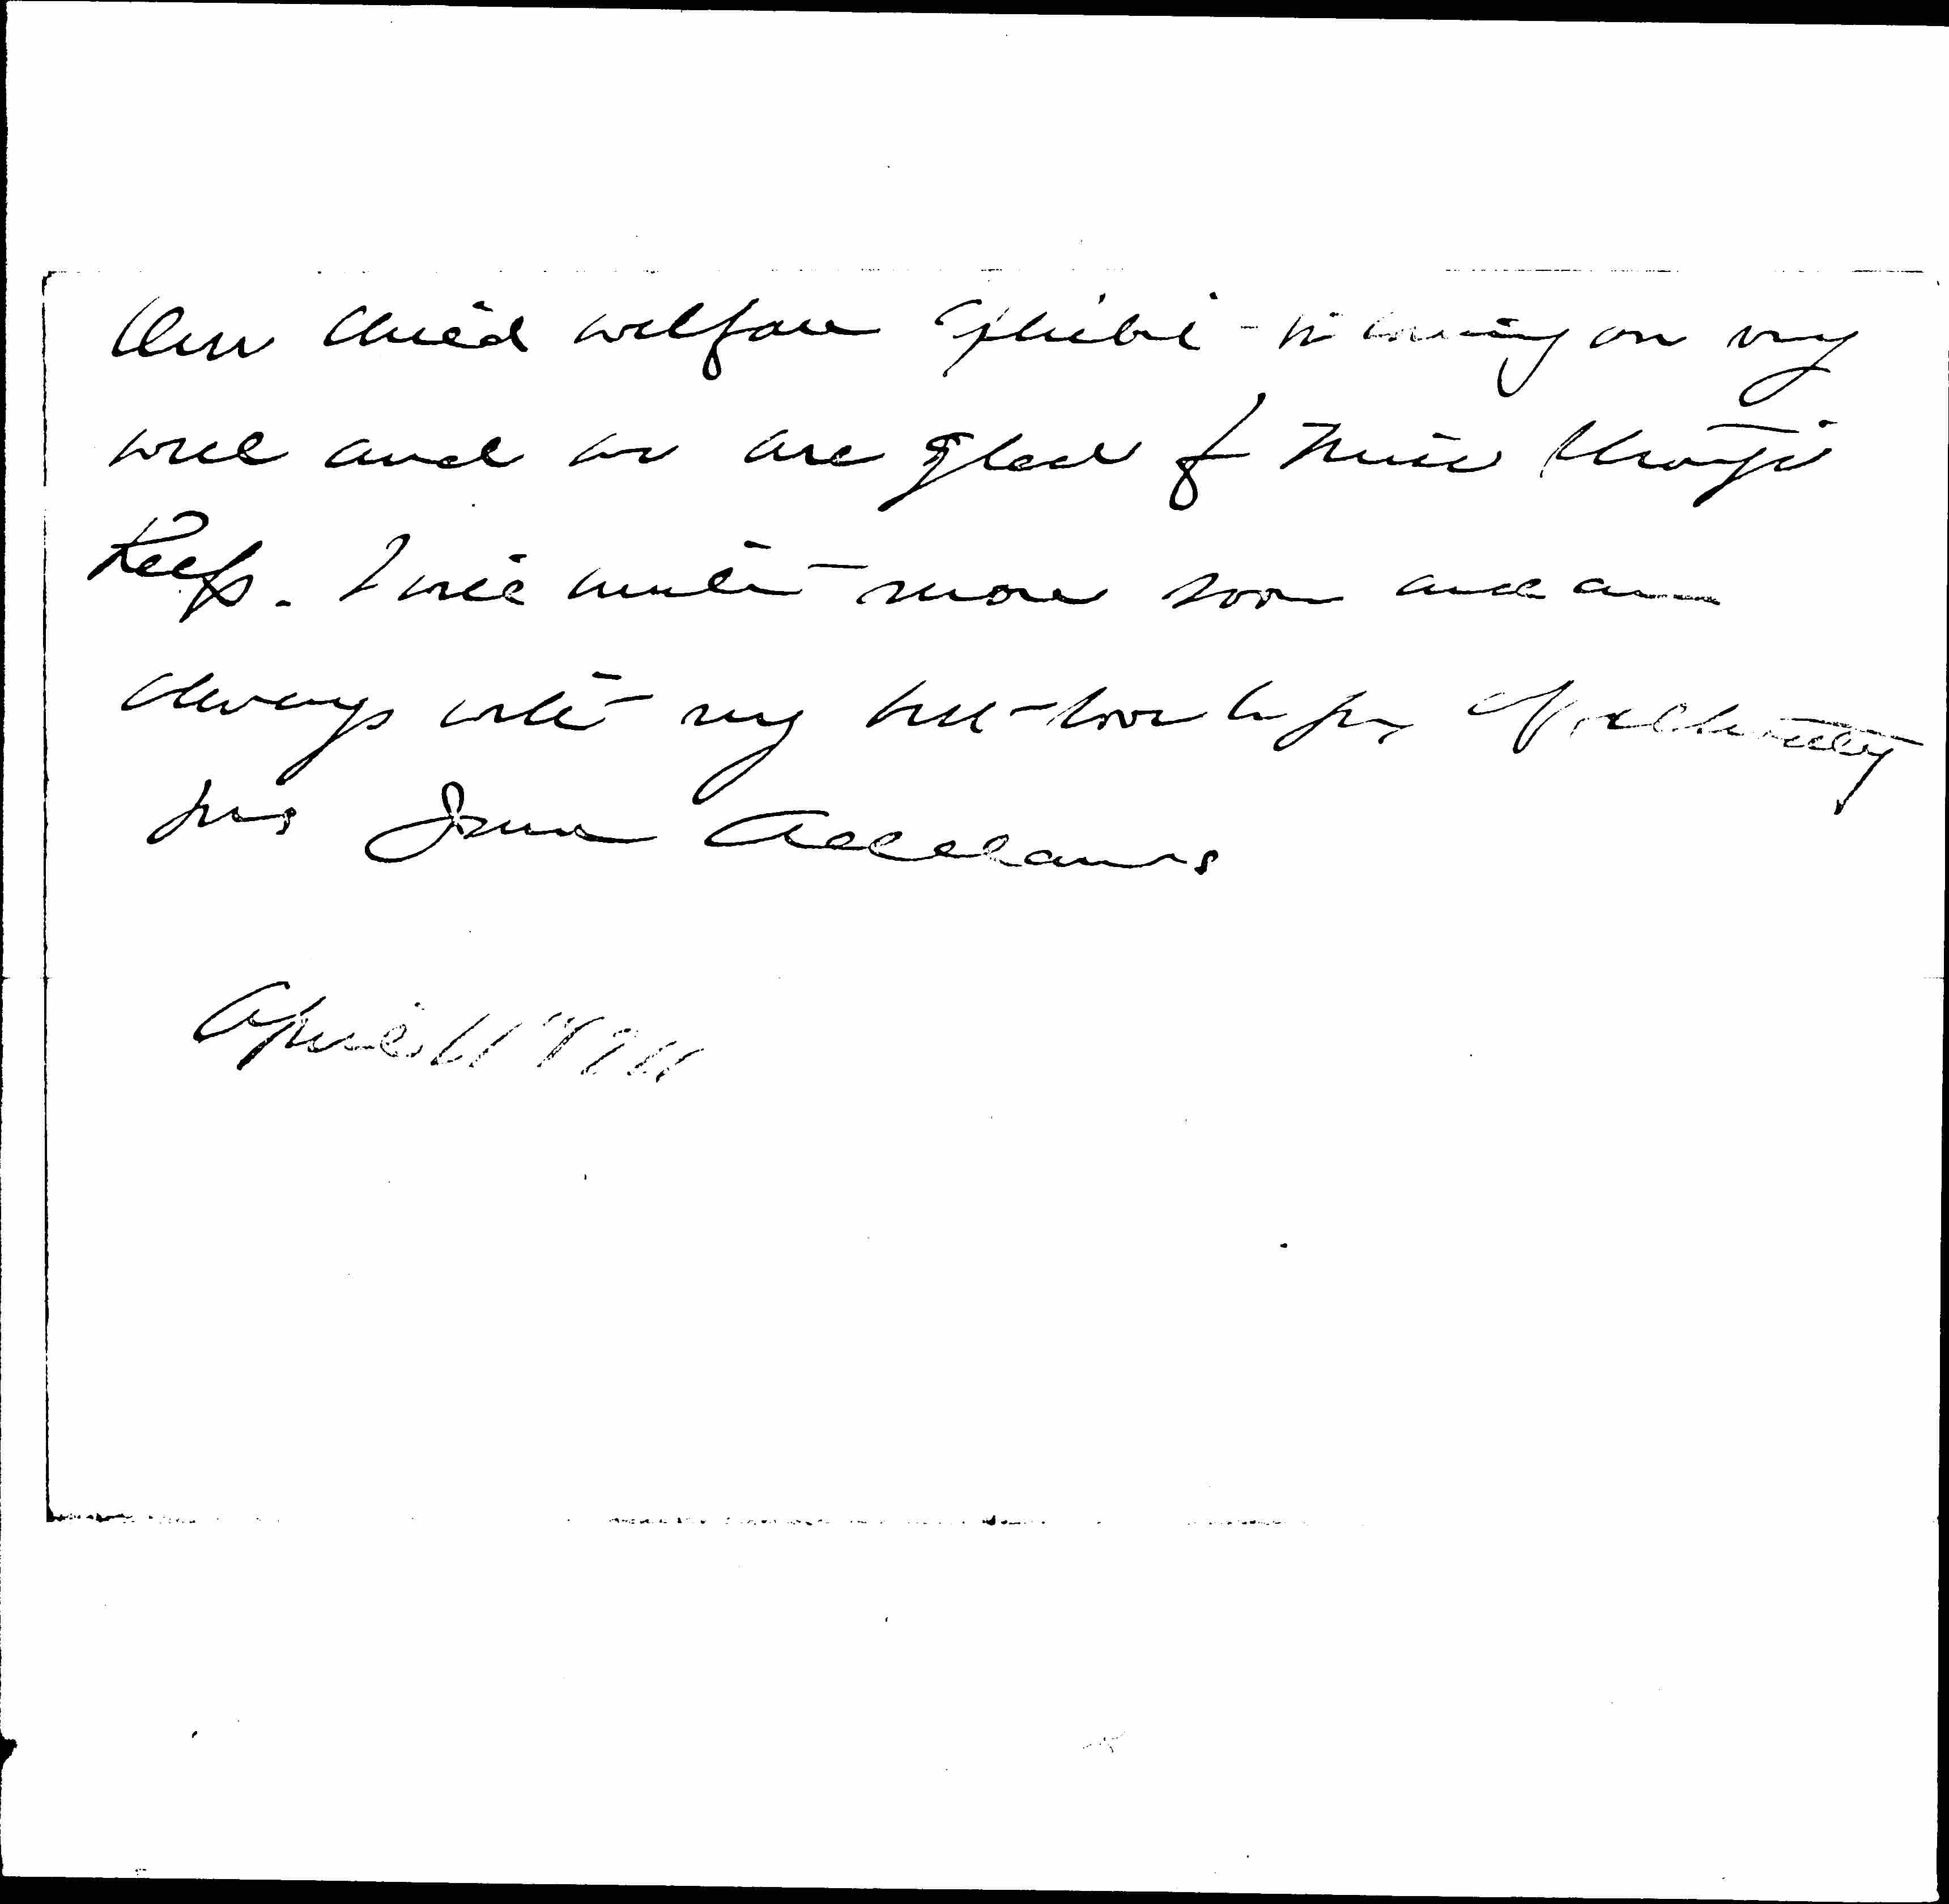 Our child welfare Exhibit is coming on very
well and we are glad of Miss
help. I will write more soon and am
always with my best love to you, Affectionately
yrs Jane Addams
April 11" 1911